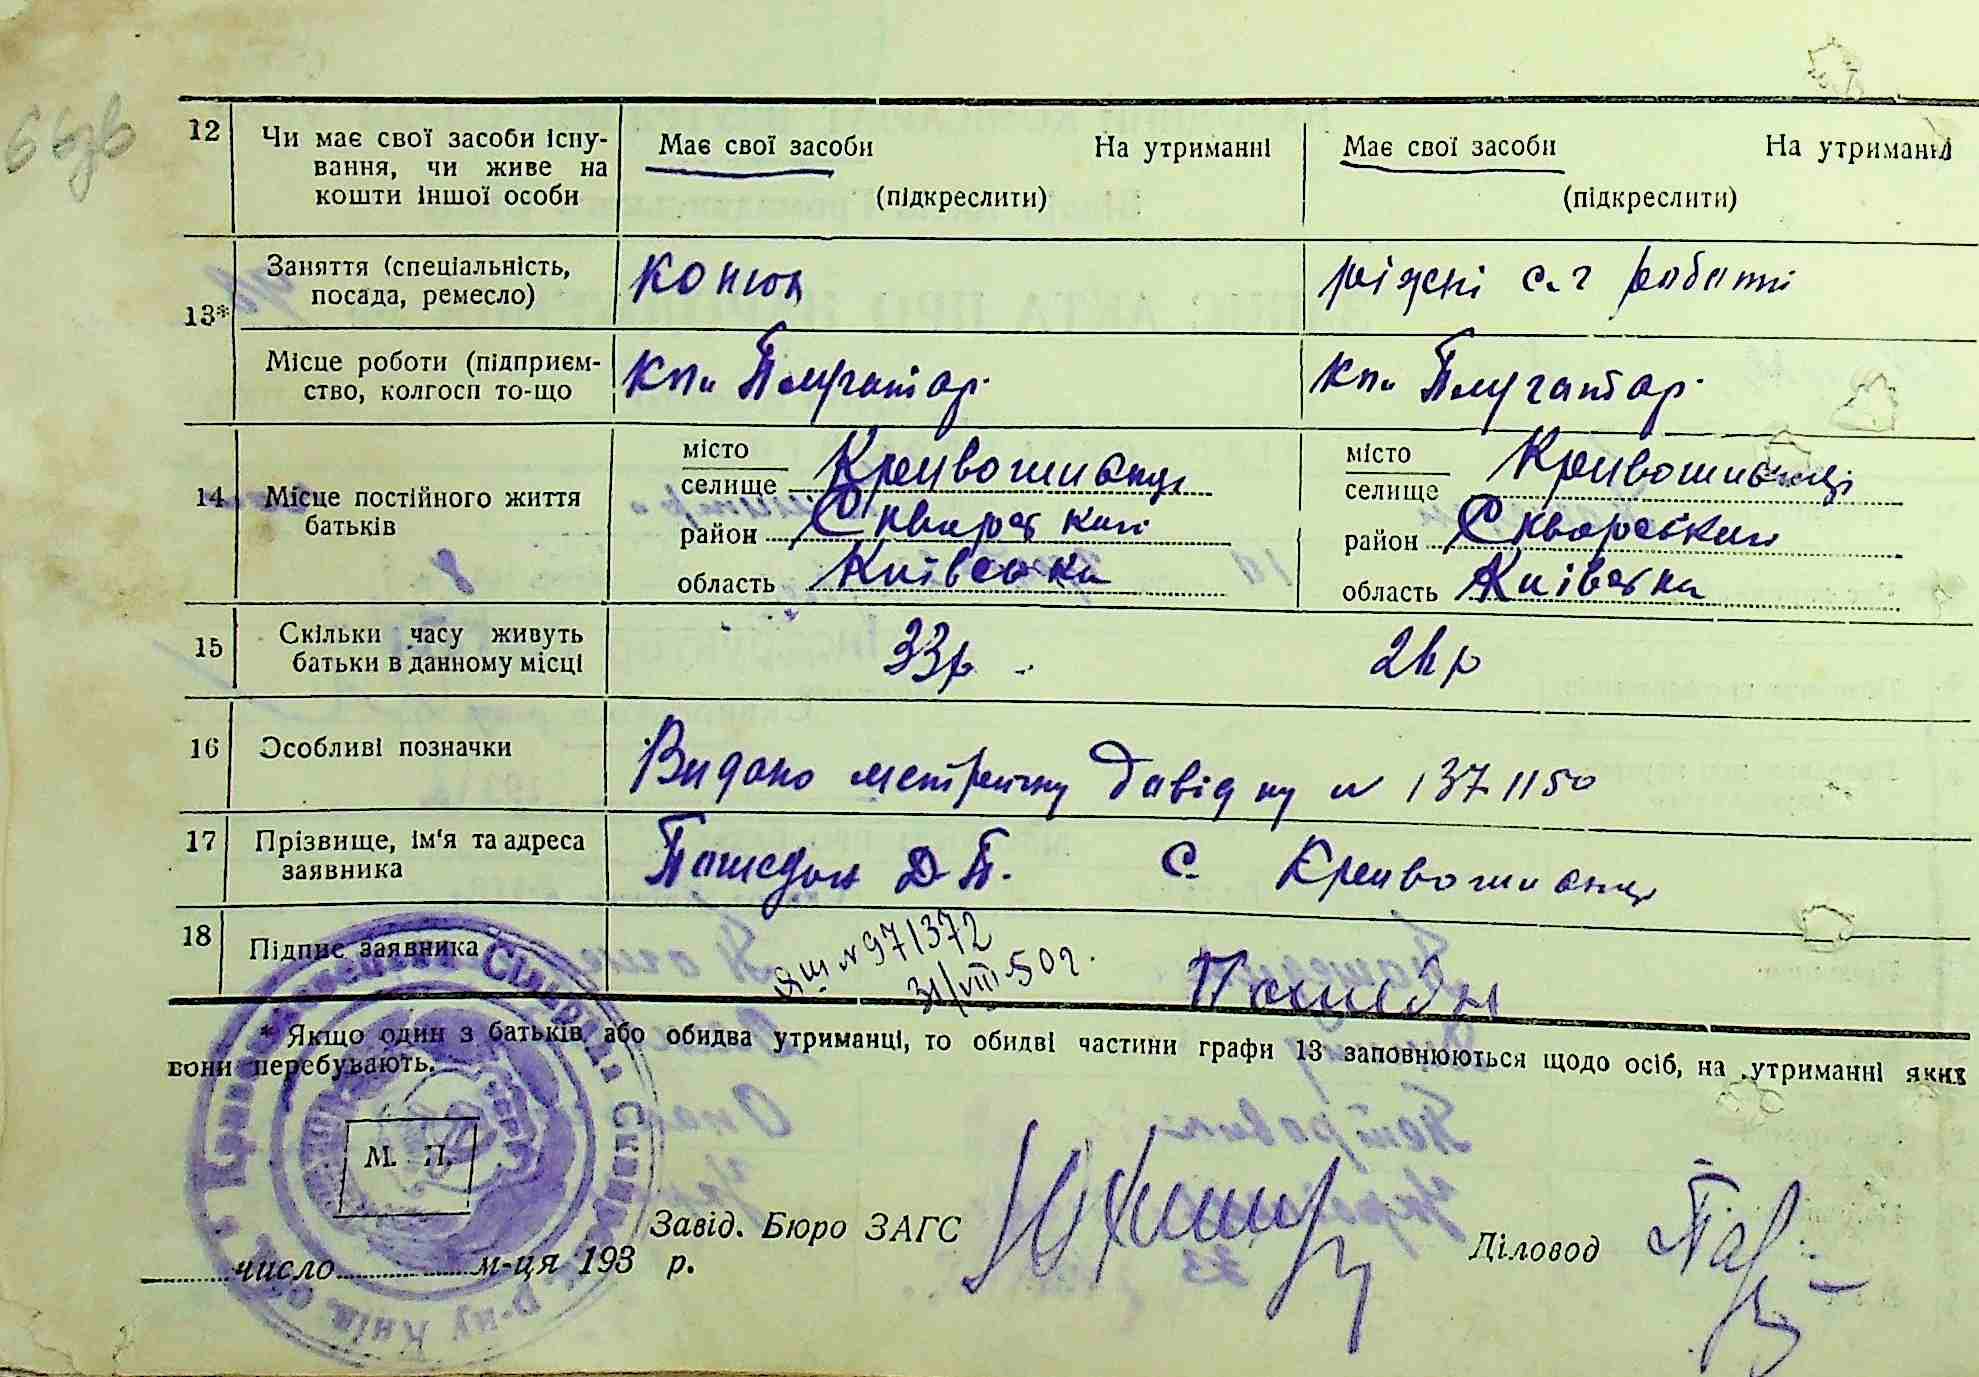 12 Чи має свої засоби існу-
вання, чи живе на
кошти іншої особи
Має свої засоби На утриманні
(підкреслити)
Має свої засоби На утриманні
(підкреслити)
13*
Заняття (спеціальність,
посада, ремесло)
конюх
ріжні с.г роботи
Місце роботи (підприєм-
ство, колгосп то-що
Плугатар.
Плугатар.
14 Місце постійного життя
батьків
місто
селище Кривошиянці
район Сквирський
область Київська
місто
селище Кривошиянці
район Сквирський
область Київська
15 Скільки часу живуть
батьки в данному місці
33р
16 Особливі позначки
Видано метричну довідку № 1371150
17 Прізвище, ім'я та адреса
заявника
Д. П. с. Кривошиянці
18 Підпис заявника
№ 971372
31/VIII-50г.
* Якщо один з батьків або обидва утриманці, то обидві частини графи 13 заповнюються щодо осіб, на утриманні яких
вони перебувають.
Сільрада
М. П.
Завід. Бюро ЗАГС
Діловод
число м-ця 193 р.